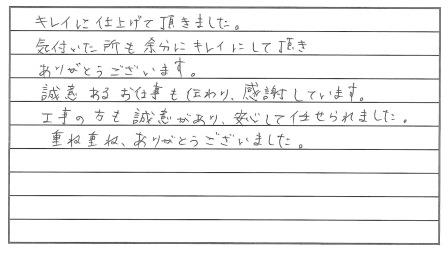 キレイに仕上げて頂きました。
気付いた所も余分にキレイにして頂き
ありがとうございます。
誠意あるお仕事も伝わり、感謝しています。
工事の方も誠意があり、安心して任せられました。
重ね重ね、ありがとうございました。